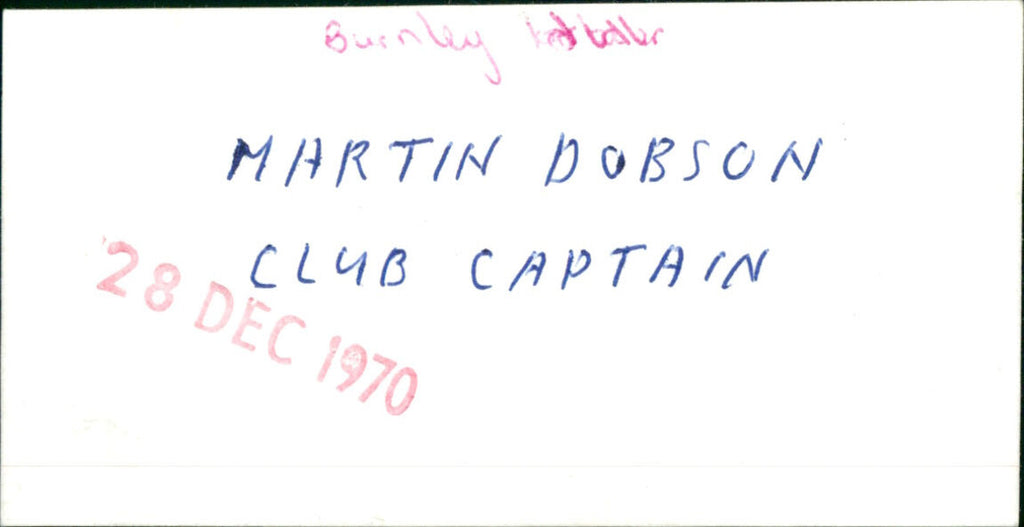 Burnley footballer
MARTIN DOBSON
CLUB CAPTAIN
28 DEC 1970